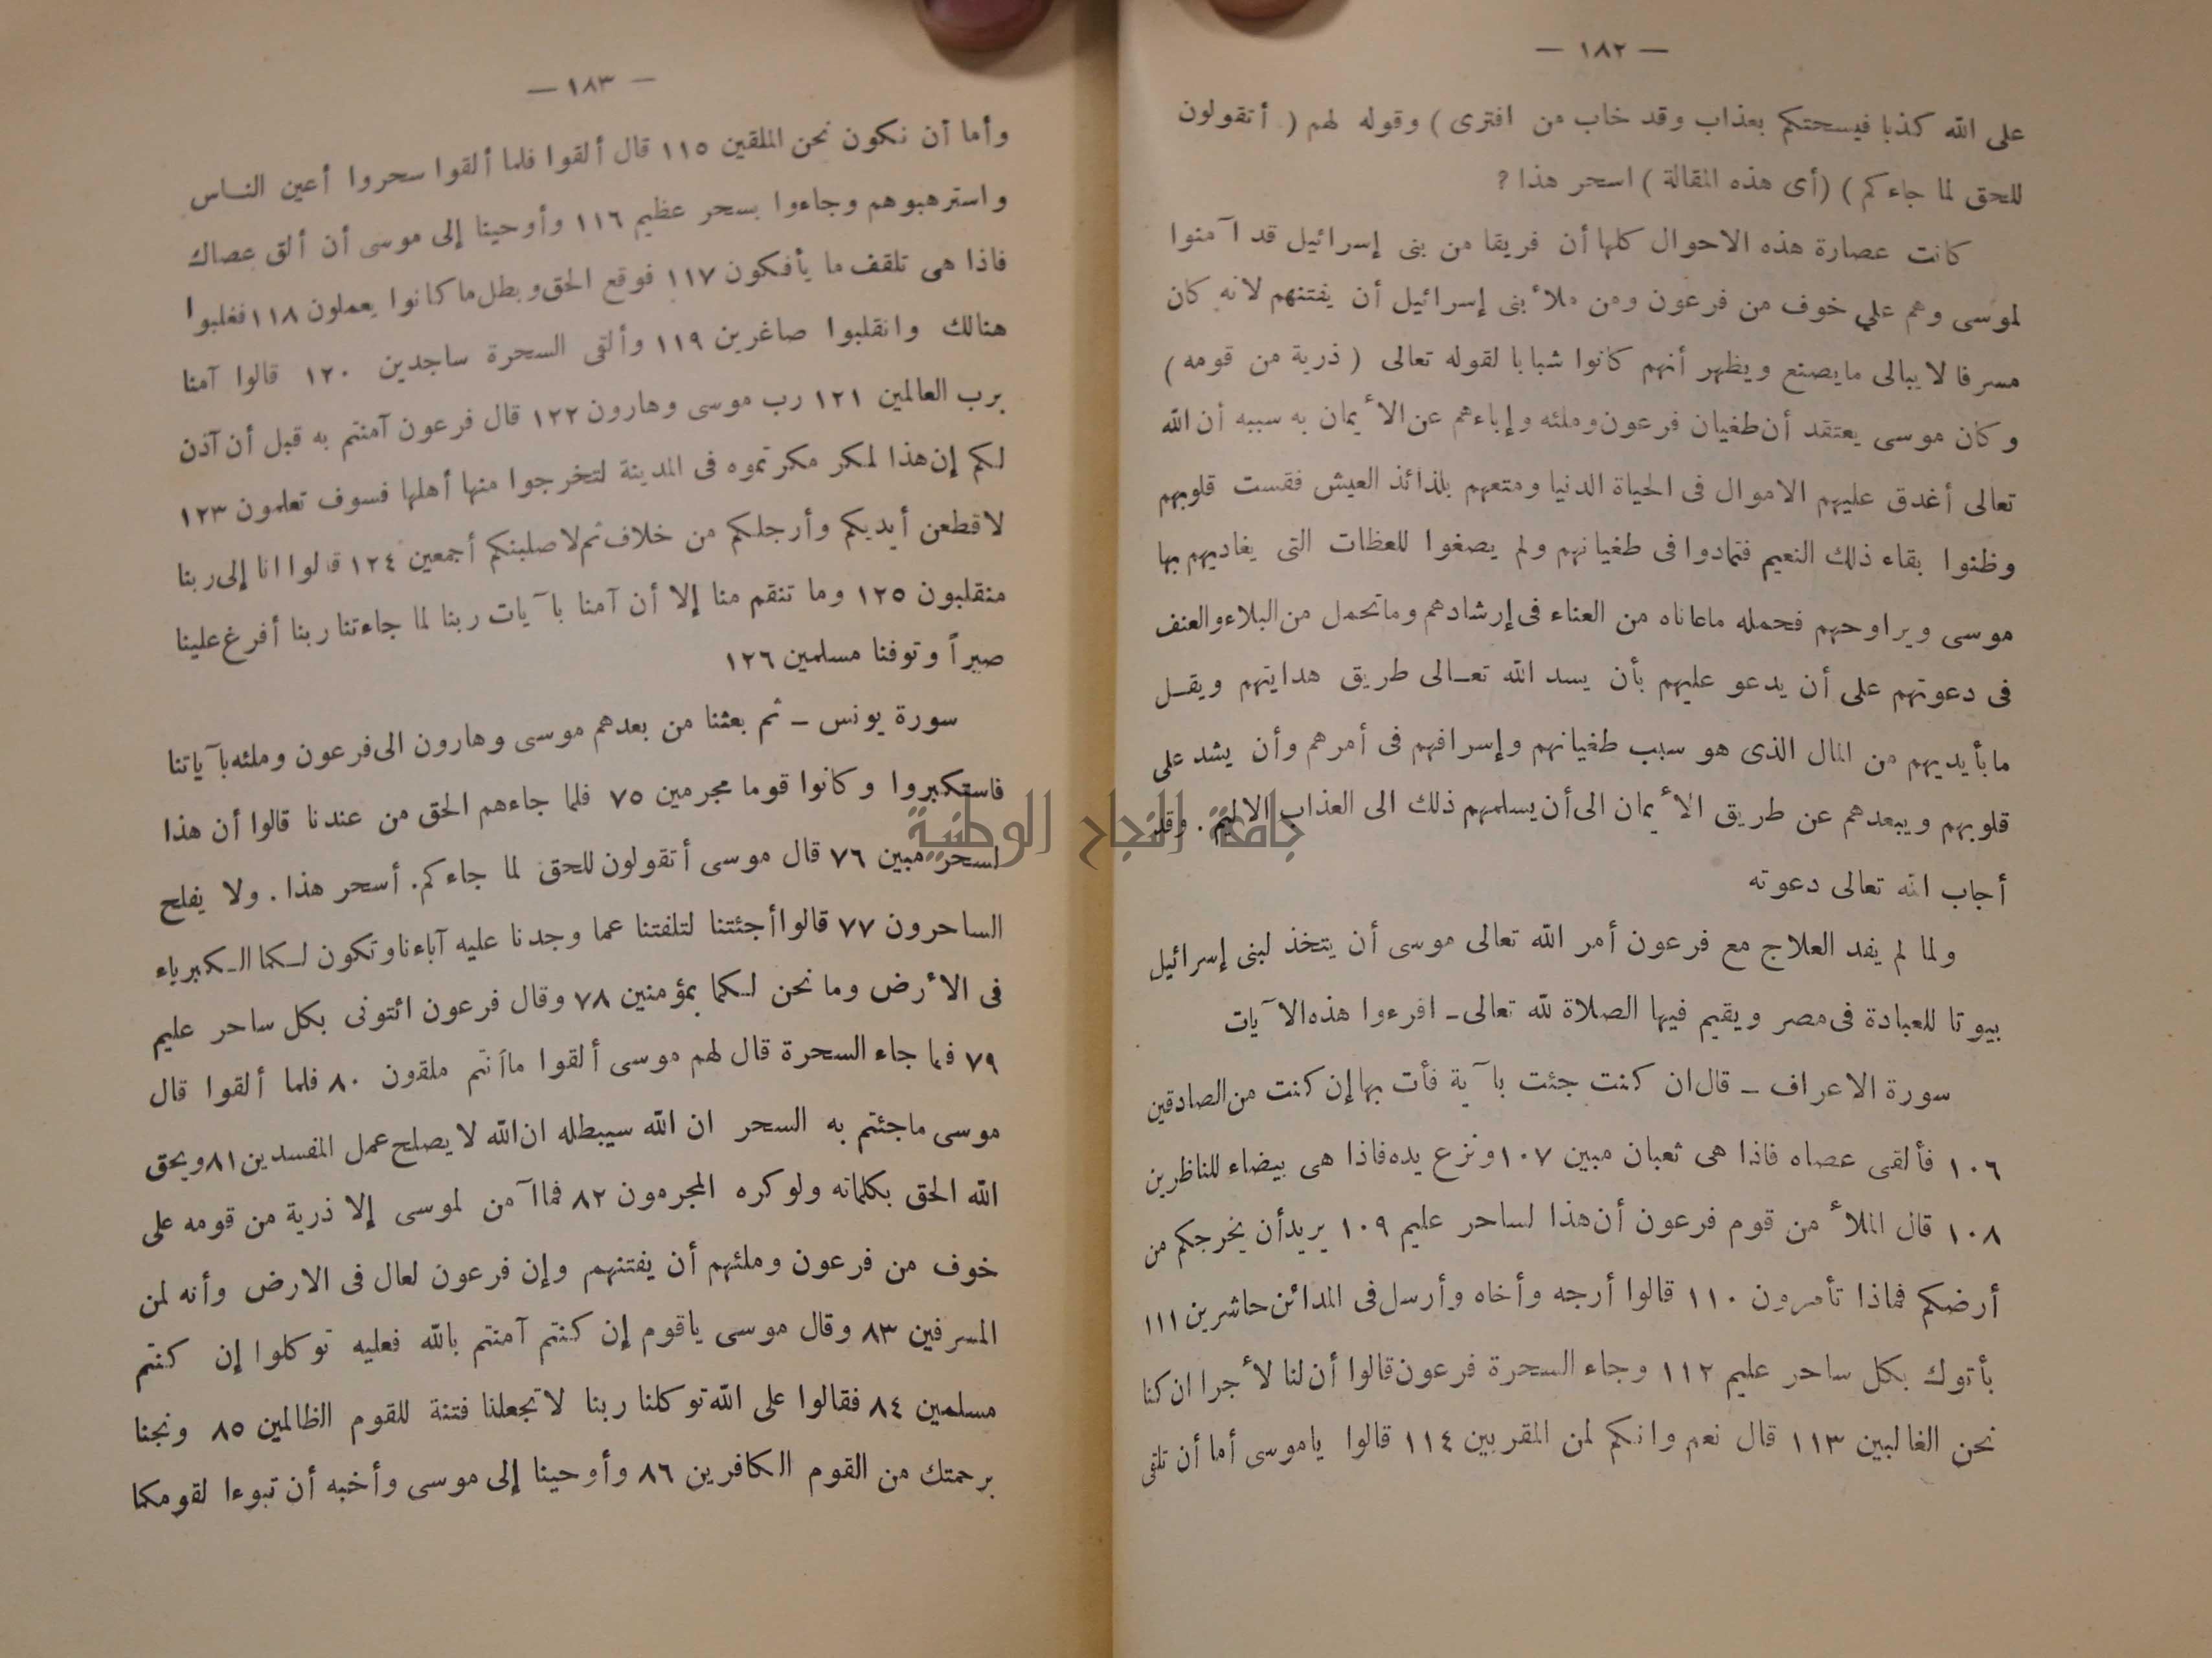 — ١٨٢ —
على الله كذبا فيسحتكم بعذاب وقد خاب من افترى ) وقوله لهم ( أتقولون
للحق لما جاءكم ) (أى هذه المقالة ) اسحر هذا ?
كانت عصارة هذه الاحوال كلها أن فريقا من بنى إسرائيل قد آمنوا
لموسى وهم على خوف من فرعون ومن ملأ بنى إسرائيل أن يفتنهم لانه كان
مسرفا لا يبالى مايصنع ويظهر أنهم كانوا شبابا لقوله تعالى ( ذرية من قومه )
وكان موسى يعتقد أن طغيان فرعون وملئه وإباءهم عن الأيمان به سببه أن الله
تعالى أغدق عليهم الاموال فى الحياة الدنيا ومتعهم بلذائذ العيش فقست قلوبهم
وظنوا بقاء ذلك النعيم فتمادوا فى طغيانهم ولم يصغوا للعظات التى يغاديهم بها
موسى ويراوحهم فحمله ماعاناه من العناء فى إرشادهم وما تحمل من البلاء والعنف
فى دعوتهم على أن يدعو عليهم بأن يسد الله تعالى طريق هدايتهم ويقل
ما بأيديهم من المال الذى هو سبب طغيانهم وإسرافهم فى أمرهم وأن يشد على
قلوبهم ويبعدهم عن طريق الأيمان الى أن يسلمهم ذلك الى العذاب الاليم . وقد
أجاب الله تعالى دعوته
ولما لم يفد العلاج مع فرعون أمر الله تعالى موسى أن يتخذ لبنى إسرائيل
بيوتا للعبادة فى مصر ويقيم فيها الصلاة لله تعالى ـ اقرءوا هذه الآيات
سورة الاعراف ـ قال ان كنت جئت بآية فأت بها إن كنت من الصادقين
١٠٦ فألقى عصاه فاذا هى ثعبان مبين ١٠٧ ونزع يده فاذا هى بيضاء للناظرين
١٠٨ قال الملأ من قوم فرعون أن هذا لساحر عليم ١٠٩ يريد أن يخرجكم من
أرضكم فماذا تأمرون ١١٠ قالوا أرجه وأخاه وأرسل فى المدائن حاشرين ١١١
يأتوك بكل ساحر عليم ١١٢ وجاء السحرة فرعون قالوا أن لنا لأجرا ان كنا
نحن الغالبين ١١٣ قال نعم وانكم لمن المقربين ١١٤ قالوا ياموسى أما أن تلقى
— ١٨٣ —
وأما أن نكون نحن الملقين ١١٥ قال ألقوا فلما ألقوا سحروا أعين الناس
واسترهبوهم وجاءوا بسحر عظيم ١١٦ وأوحينا إلى موسى أن ألق عصاك
فاذا هى تلقف ما يأفكون ١١٧ فوقع الحق وبطل ما كانوا يعملون ١١٨ فغلبوا
هنالك وانقلبوا صاغرين ١١٩ وألقى السحرة ساجدين ١٢٠ قالوا آمنا
برب العالمين ١٢١ رب موسى وهارون ١٢٢ قال فرعون آمنتم به قبل أن آذن
لكم إن هذا لمكر مكرتموه فى المدينة لتخرجوا منها أهلها فسوف تعلمون ١٢٣
لاقطعن أيديكم وأرجلكم من خلاف ثم لاصلبنكم أجمعين ١٢٤ قالوا انا إلى ربنا
منقلبون ١٢٥ وما تنقم منا إلا أن آمنا بآيات ربنا لما جاءتنا ربنا أفرغ علينا
صبراً وتوفنا مسلمين ١٢٦
سورة يونس ـ ثم بعثنا من بعدهم موسى وهارون الى فرعون وملئه بآياتنا
فاستكبروا وكانوا قوما مجرمين ٧٥ فلما جاءهم الحق من عندنا قالوا أن هذا
لسحر مبين ٧٦ قال موسى أتقولون للحق لما جاءكم . أسحر هذا . ولا يفلح
الساحرون ٧٧ قالوا أجئتنا لتلفتنا عما وجدنا عليه آباءنا وتكون لكما الكبرياء
فى الأرض وما نحن لكما بمؤمنين ٧٨ وقال فرعون ائتونى بكل ساحر عليم
٧٩ فلما جاء السحرة قال لهم موسى ألقوا ما أنتم ملقون ٨٠ فلما ألقوا قال
موسى ماجئتم به السحر ان الله سيبطله ان الله لا يصلح عمل المفسدين ٨١ ويحق
الله الحق بكلماته ولوكره المجرمون ٨٢ فما آمن لموسى إلا ذرية من قومه على
خوف من فرعون وملئهم أن يفتنهم وإن فرعون لعال فى الارض وأنه لمن
المسرفين ٨٣ وقال موسى ياقوم إن كنتم آمنتم بالله فعليه توكلوا إن كنتم
مسلمين ٨٤ فقالوا على الله توكلنا ربنا لا تجعلنا فتنة للقوم الظالمين ٨٥ ونجنا
برحمتك من القوم الكافرين ٨٦ وأوحينا إلى موسى وأخيه أن تبوءا لقومكما
جامعة النجاح الوطنية